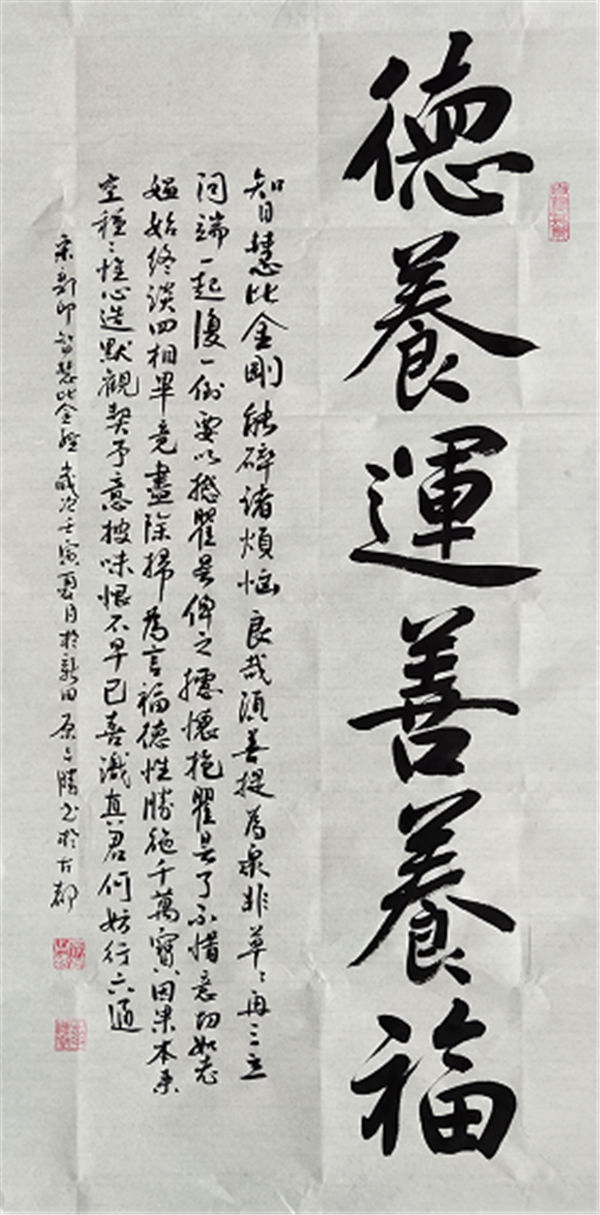 德養運善養福
智慧比金剛能碎諸煩惱良哉須菩提為衆非草々再三立
問端一起復一倒要以撼瞿曇俾之攄懷抱瞿曇了不惜意切如老
媪始終談四相畢竟盡除掃為言福德性勝施千萬寶因果本來
空種々惟心造默觀契予意披味恨不早已喜識真君何妨行六通
宋郭印智慧比金經歲次壬寅夏月於新田原文勝書於古都